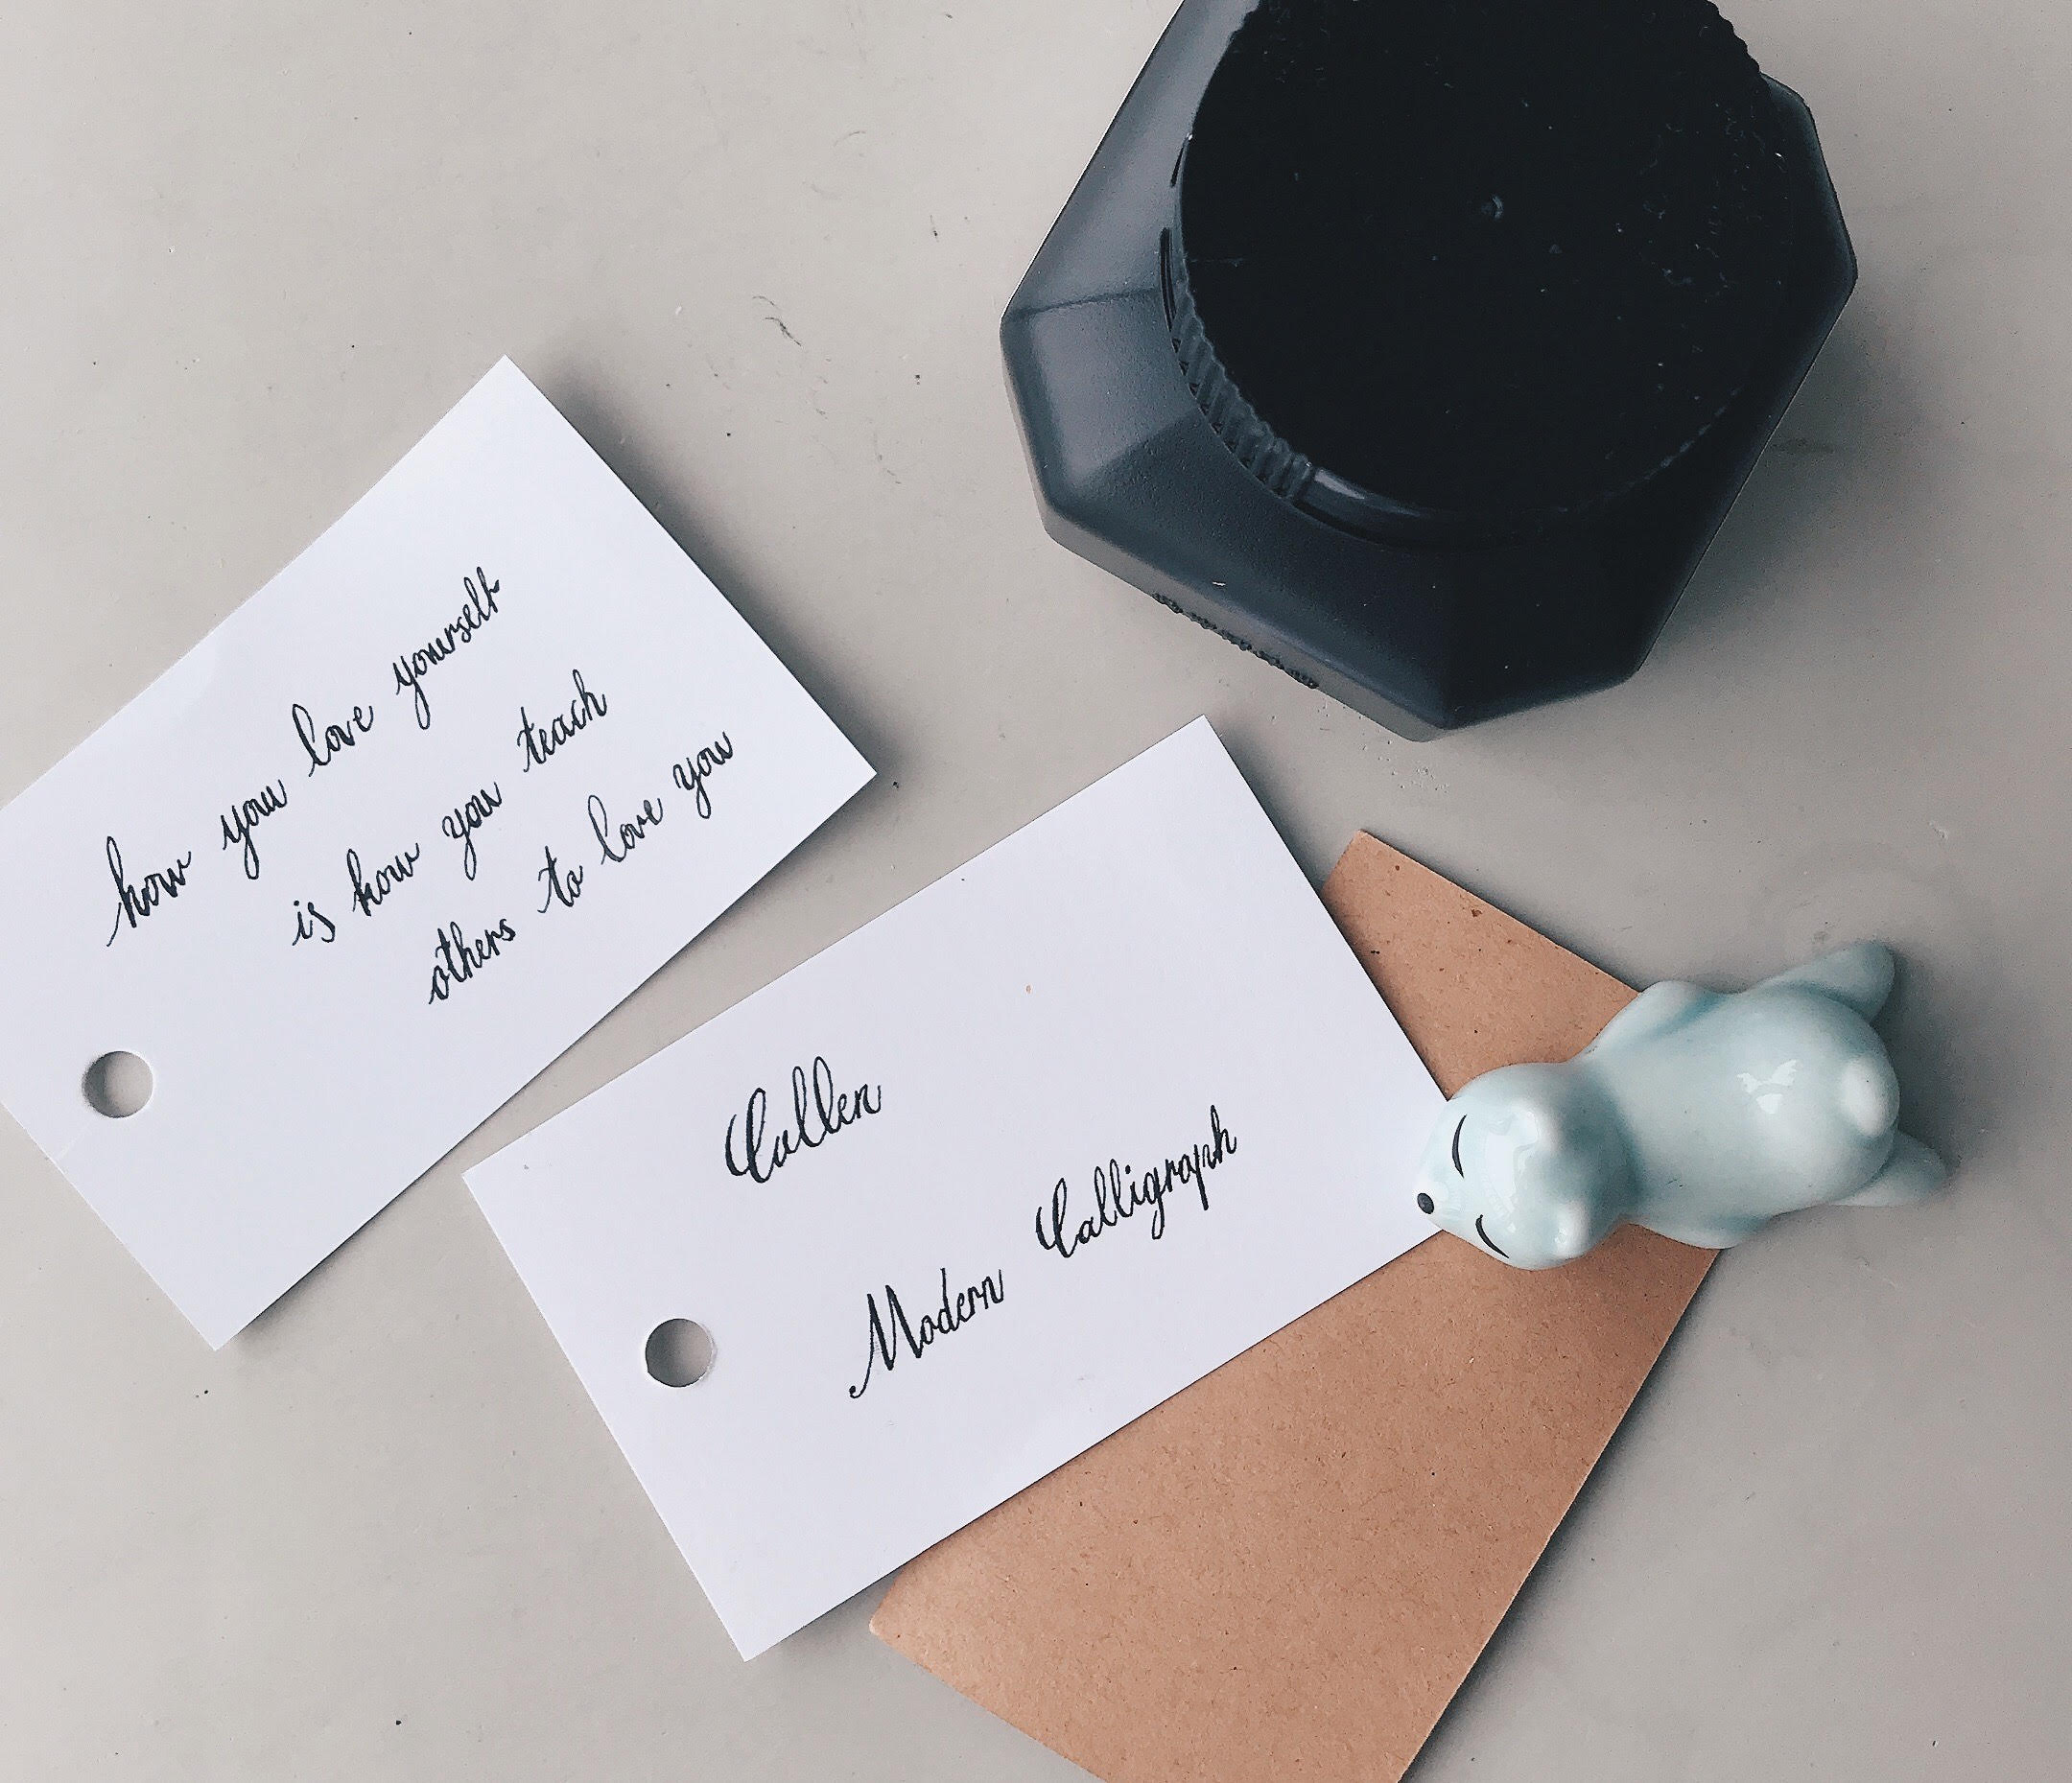 how you love yourself
is how you teach
others to love you
Callen
Modern Calligraph